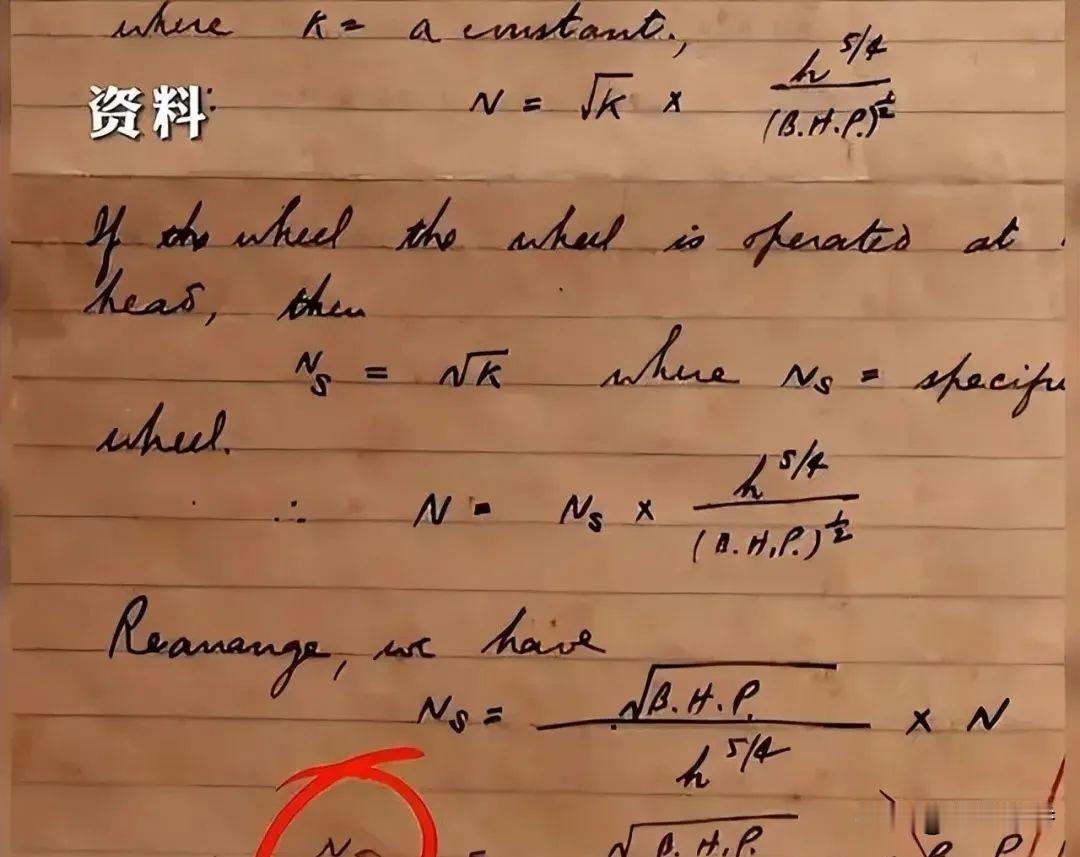 where K = a constant.,
N = √K × h^5/4 / (B.H.P.)^1/2
资料:
If the wheel the wheel is operated at
head, then
Ns = √K where Ns = specifi
wheel.
∴ N = Ns × h^5/4 / (B.H.P.)^1/2
Rearrange, we have
Ns = √B.H.P. / h^5/4 × N
= √B.H.P.